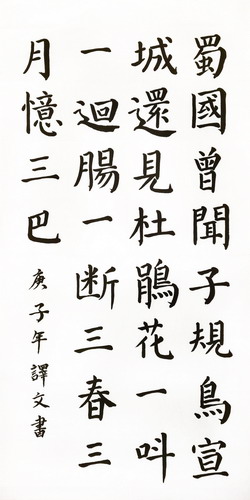 蜀國曾聞子規鳥宣
城還見杜鵑花一叫
一迴腸一断三春三
月憶三巴
庚子年譯文書